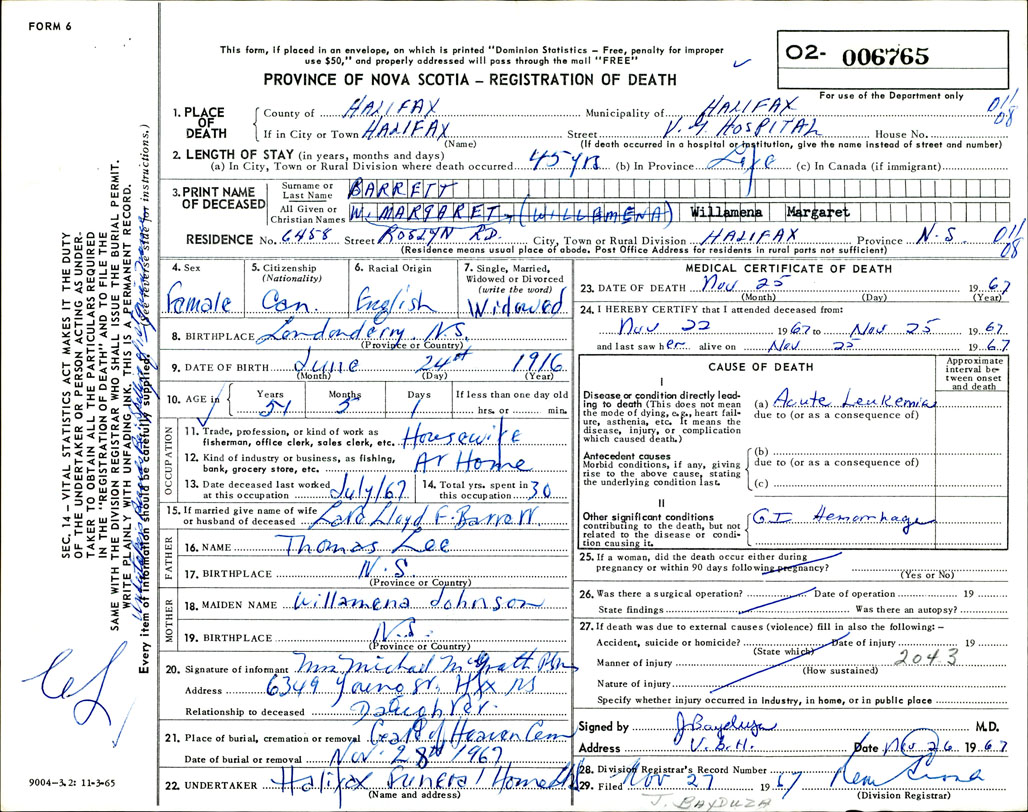 FORM 6
This form, if placed in an envelope, on which is printed "Dominion Statistics – Free, penalty for improper
use $50," and properly addressed will pass through the mail "FREE"
PROVINCE OF NOVA SCOTIA – REGISTRATION OF DEATH
02- 006765
For use of the Department only
1. PLACE OF DEATH
County of HALIFAX Municipality of HALIFAX 011/08
If in City or Town HALIFAX Street V.G HOSPITAL House No.
(Name) (If death occurred in a hospital or institution, give the name instead of street and number)
2. LENGTH OF STAY (in years, months and days)
(a) In City, Town or Rural Division where death occurred 45 yrs (b) In Province Life (c) In Canada (if immigrant)
3. PRINT NAME OF DECEASED
Surname or Last Name BARRETT
All Given or Christian Names W. MARGARET, (WILLAMENA) Willamena Margaret
RESIDENCE No. 6458 Street ROSLYN RD. City, Town or Rural Division HALIFAX Province N.S. 011/08
(Residence means usual place of abode. Post Office Address for residents in rural parts not sufficient)
4. Sex Female
5. Citizenship (Nationality) Can.
6. Racial Origin English
7. Single, Married, Widowed or Divorced (write the word) Widowed
8. BIRTHPLACE Londonderry, N.S.
(Province or Country)
9. DATE OF BIRTH June 24st 1916
(Month) (Day) (Year)
10. AGE in Years 51 Months 5 Days 1 If less than one day old hrs. or min.
OCCUPATION
11. Trade, profession, or kind of work as fisherman, office clerk, sales clerk, etc. Housewife
12. Kind of industry or business, as fishing, bank, grocery store, etc. At Home
13. Date deceased last worked at this occupation July/67
14. Total yrs. spent in this occupation 30
15. If married give name of wife or husband of deceased Late Lloyd F. Barrett.
FATHER
16. NAME Thomas Lee
17. BIRTHPLACE N.S.
(Province or Country)
MOTHER
18. MAIDEN NAME Willamena Johnson
19. BIRTHPLACE N.S.
(Province or Country)
20. Signature of informant Mrs Michael McGrath
Address 6349 Young St. Hfx NS
Relationship to deceased Daughter.
21. Place of burial, cremation or removal Gate of Heaven Cem
Date of burial or removal Nov. 28th 1967
22. UNDERTAKER Halifax Funeral Home
(Name and address)
MEDICAL CERTIFICATE OF DEATH
23. DATE OF DEATH Nov 25 1967
(Month) (Day) (Year)
24. I HEREBY CERTIFY that I attended deceased from:
Nov 22 1967 to Nov 25 1967
and last saw her alive on Nov 25 1967
CAUSE OF DEATH
Approximate interval between onset and death
I
Disease or condition directly leading to death (This does not mean the mode of dying, e.g., heart failure, asthenia, etc. It means the disease, injury, or complication which caused death.)
(a) Acute Leukemia
due to (or as a consequence of)
Antecedent causes
Morbid conditions, if any, giving rise to the above cause, stating the underlying condition last.
(b)
due to (or as a consequence of)
(c)
II
Other significant conditions contributing to the death, but not related to the disease or condition causing it.
G.I Hemorrhage
25. If a woman, did the death occur either during
pregnancy or within 90 days following pregnancy?
(Yes or No)
26. Was there a surgical operation? Date of operation 19
State findings Was there an autopsy?
27. If death was due to external causes (violence) fill in also the following: –
Accident, suicide or homicide? Date of injury 19
(State which)
Manner of injury 2043
(How sustained)
Nature of injury
Specify whether injury occurred in Industry, in home, or in public place
Signed by J Bayduza M.D.
Address V.G.H. Date Nov 26 1967
28. Division Registrar's Record Number
29. Filed Nov 27 1967
(Division Registrar)
J. BAYDUZA
SEC. 14 – VITAL STATISTICS ACT MAKES IT THE DUTY
OF THE UNDERTAKER OR PERSON ACTING AS UNDER-
TAKER TO OBTAIN ALL THE PARTICULARS REQUIRED
IN THE "REGISTRATION OF DEATH" AND TO FILE THE
SAME WITH THE DIVISION REGISTRAR WHO SHALL ISSUE THE BURIAL PERMIT.
WRITE PLAINLY WITH UNFADING INK. THIS IS A PERMANENT RECORD.
Every item of information should be carefully supplied. (See reverse side for instructions.)
9004–3.2: 11-3-65